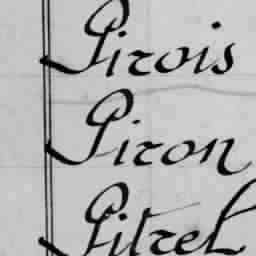 Pirois
Piron
Pitrel